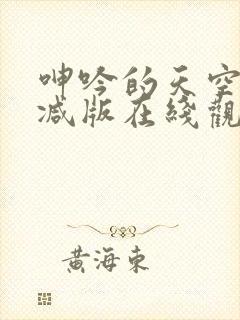 呻吟的天空
减版在綫觀
黄海東